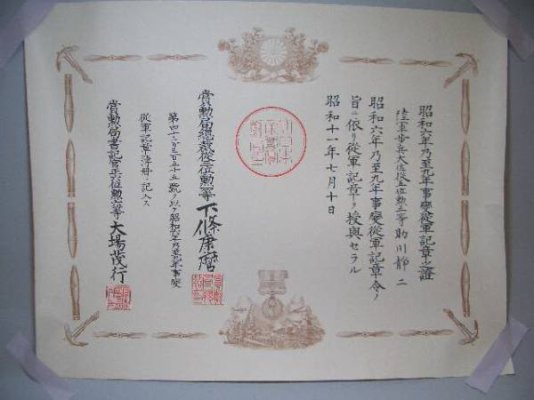 昭和六年乃至九年事變從軍記章之證
陸軍步兵大佐從五位勲三等助川靜二
昭和六年乃至九年事變從軍記章令ノ
旨ニ依リ從軍記章ヲ授與セラル
昭和十一年七月十日
賞勲局總裁從位勲等下條康麿
號ヲ以テ昭和六年乃至九年事變
從軍記章簿册ニ記入ス
賞勲局書記官位勲等大場茂行